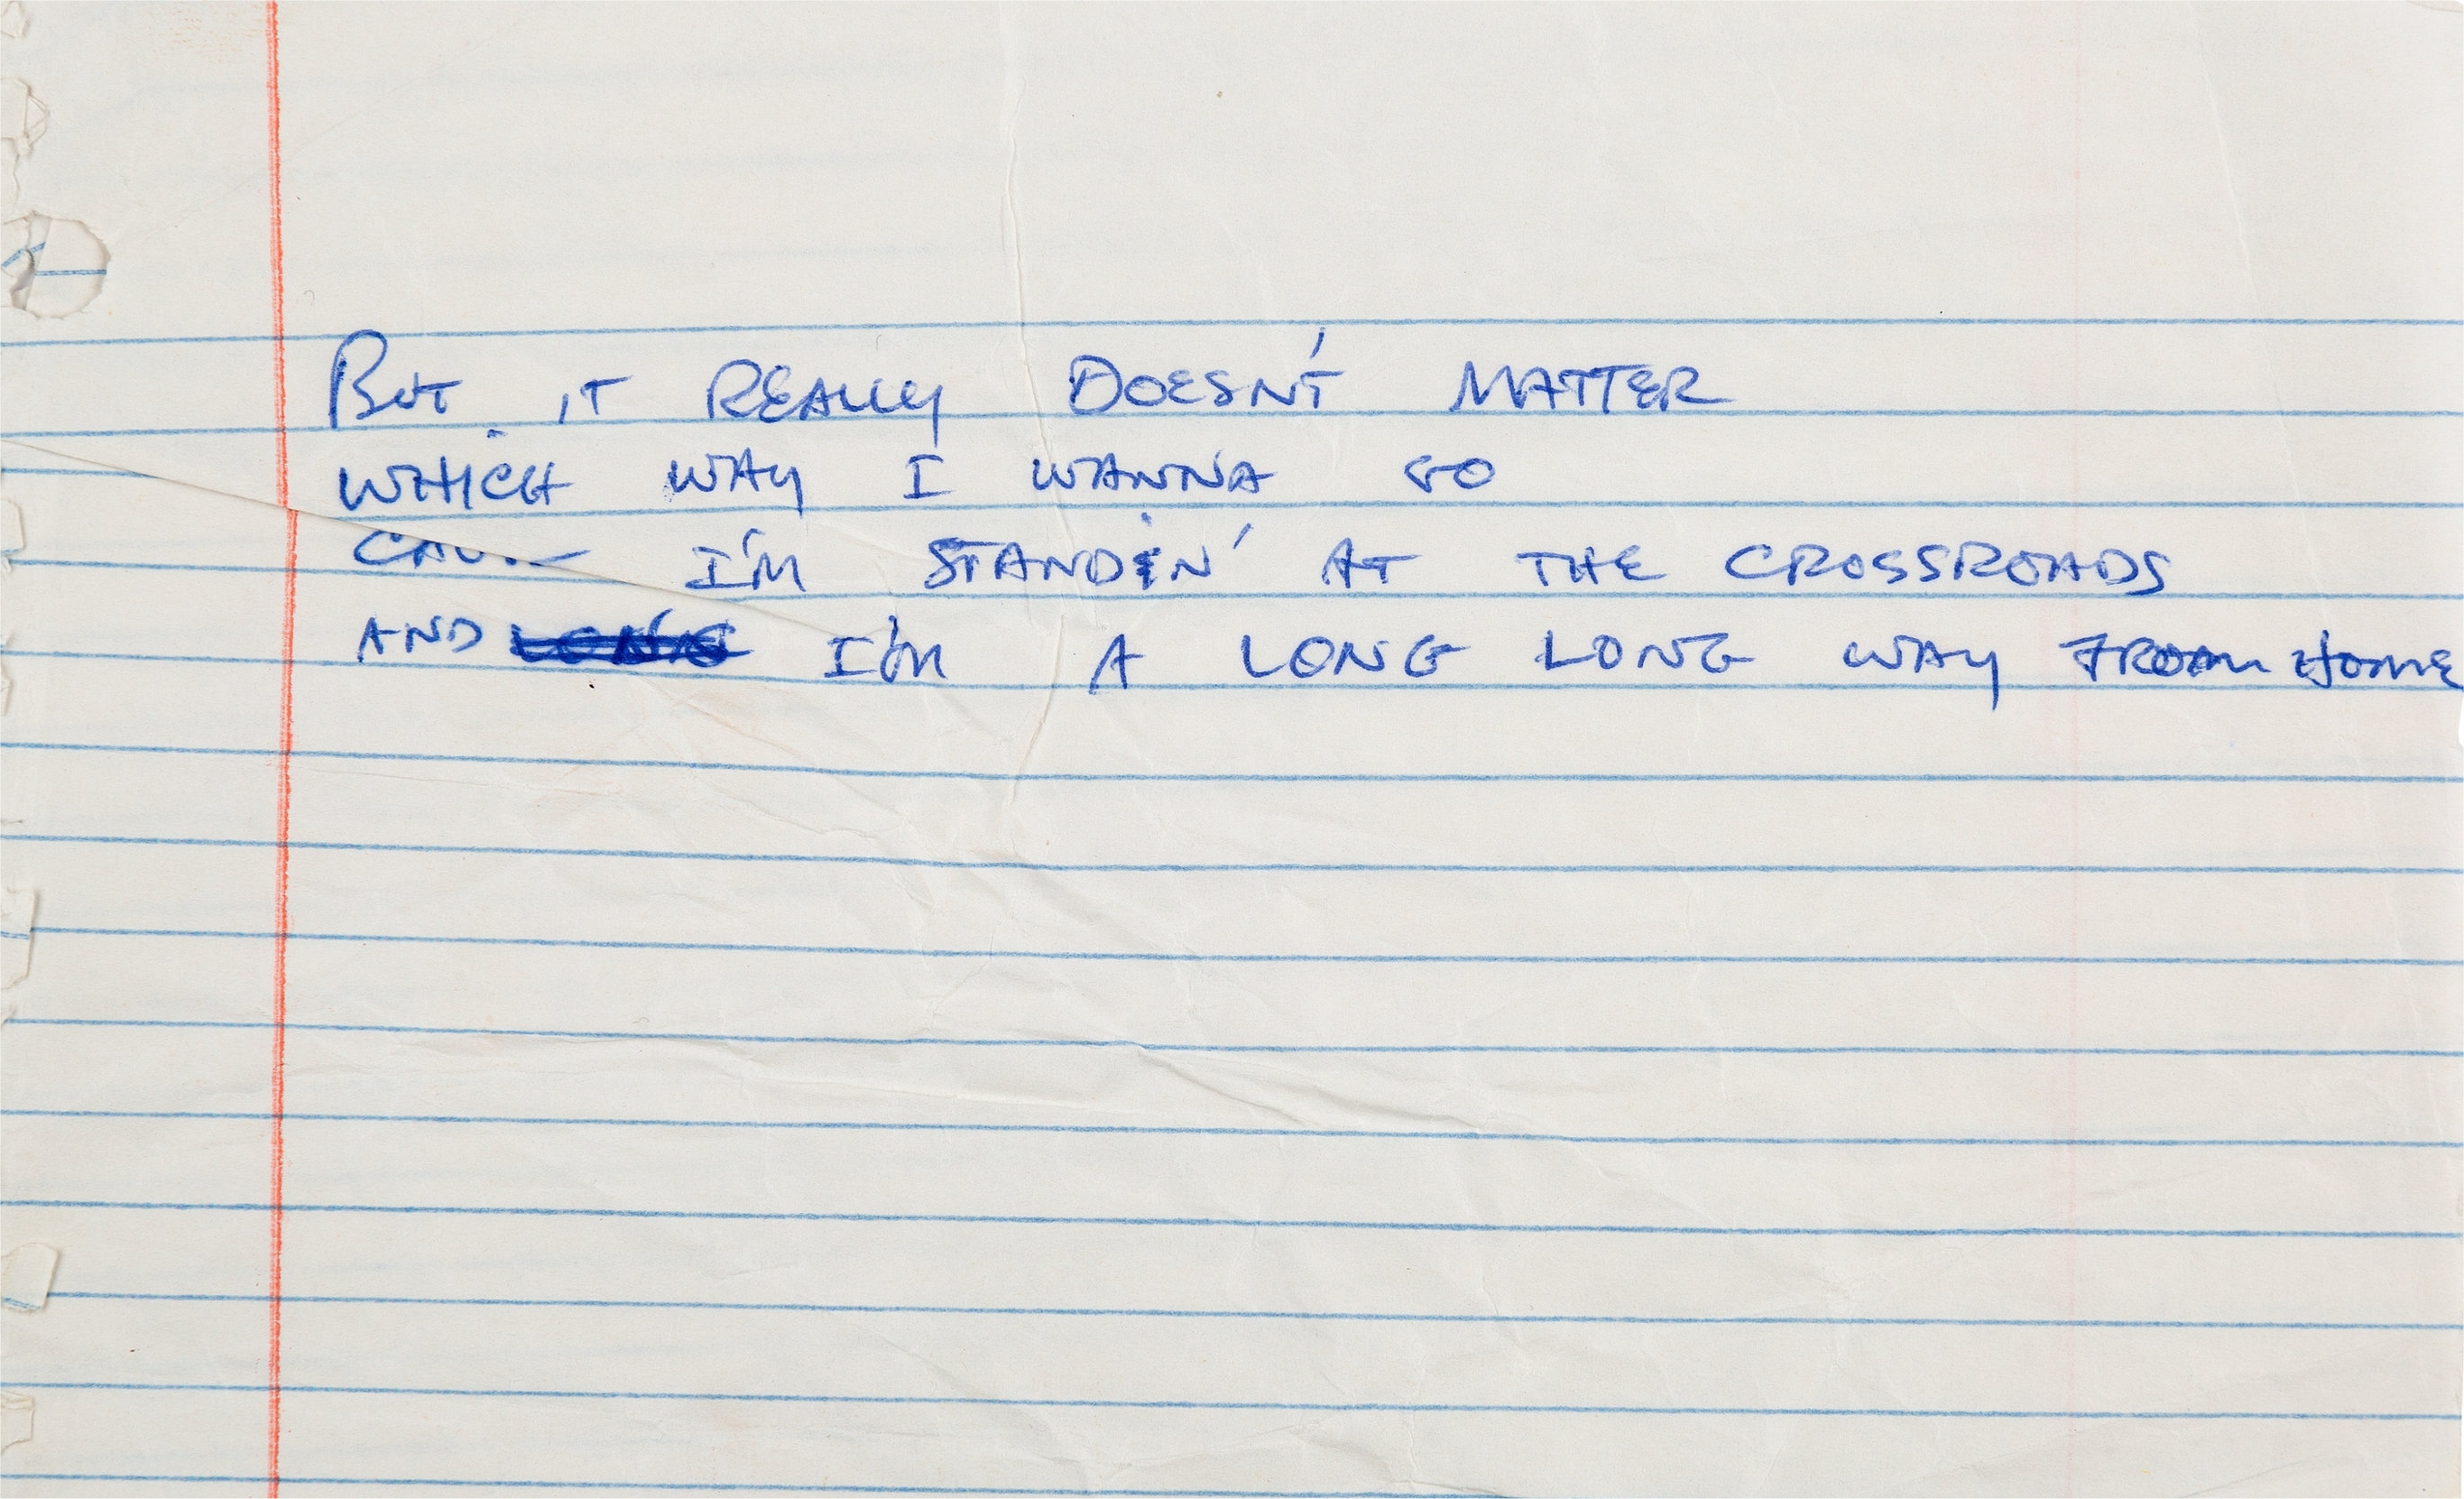 But it REALLY DOESN'T MATTER
WHICH WAY I WANNA GO
CAUSE I'M STANDIN' AT THE CROSSROADS
AND I'M A LONG LONG WAY FROM HOME